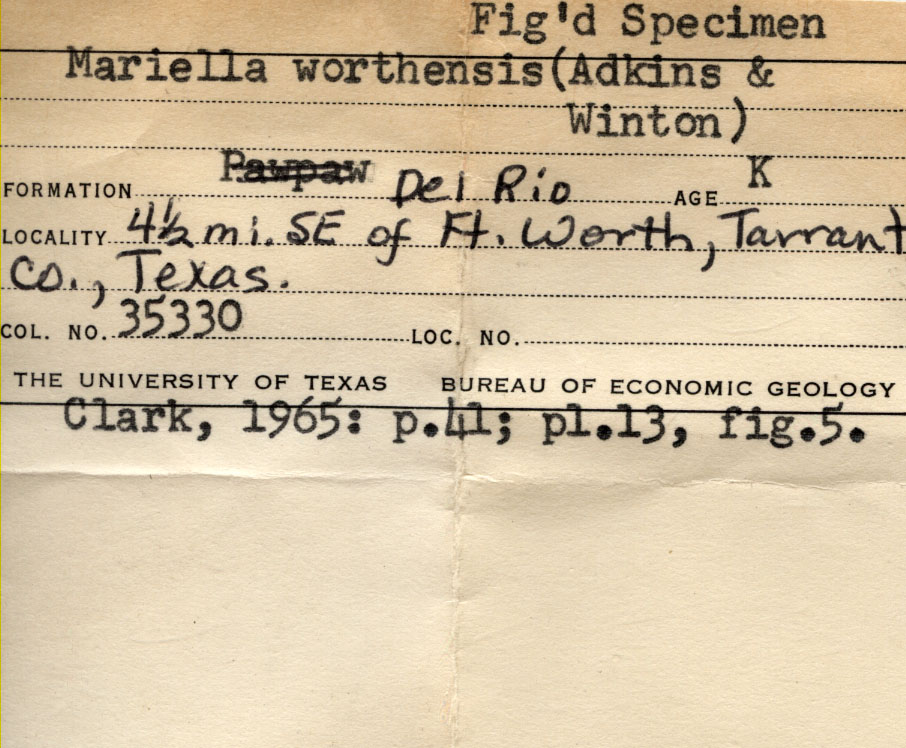 Fig'd Specimen
Mariella worthensis(Adkins &
Winton)
FORMATION Pawpaw Del Rio AGE K
LOCALITY 4½ mi. SE of Ft. Worth, Tarrant
Co., Texas.
COL. NO. 35330 LOC. NO.
THE UNIVERSITY OF TEXAS BUREAU OF ECONOMIC GEOLOGY
Clark, 1965: p.41; pl.13, fig.5.